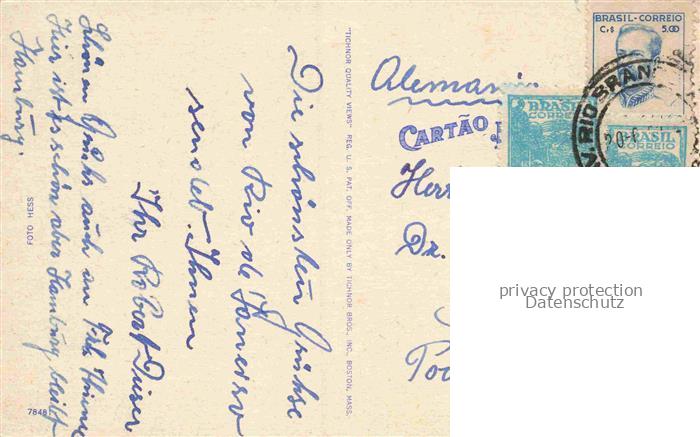 Die schönsten Grühse
von Rio de Janeiro
sendet Ihnen
Ihr Robert
Schönen Grühs auch an Frl.
Hier ist es schön aber Hamburg bleibt
Hamburg.
FOTO HESS
7848
"TICHNOR QUALITY VIEWS" REG. U. S. PAT. OFF. MADE ONLY BY TICHNOR BROS., INC., BOSTON, MASS.
Alemania
CARTÃO
Herr
Dr.
BRASIL-CORREIO
Cr$ 5,00
BRASIL
CORREIO
BRASIL
CORREIO
V. RIO BRAN
privacy protection
Datenschutz